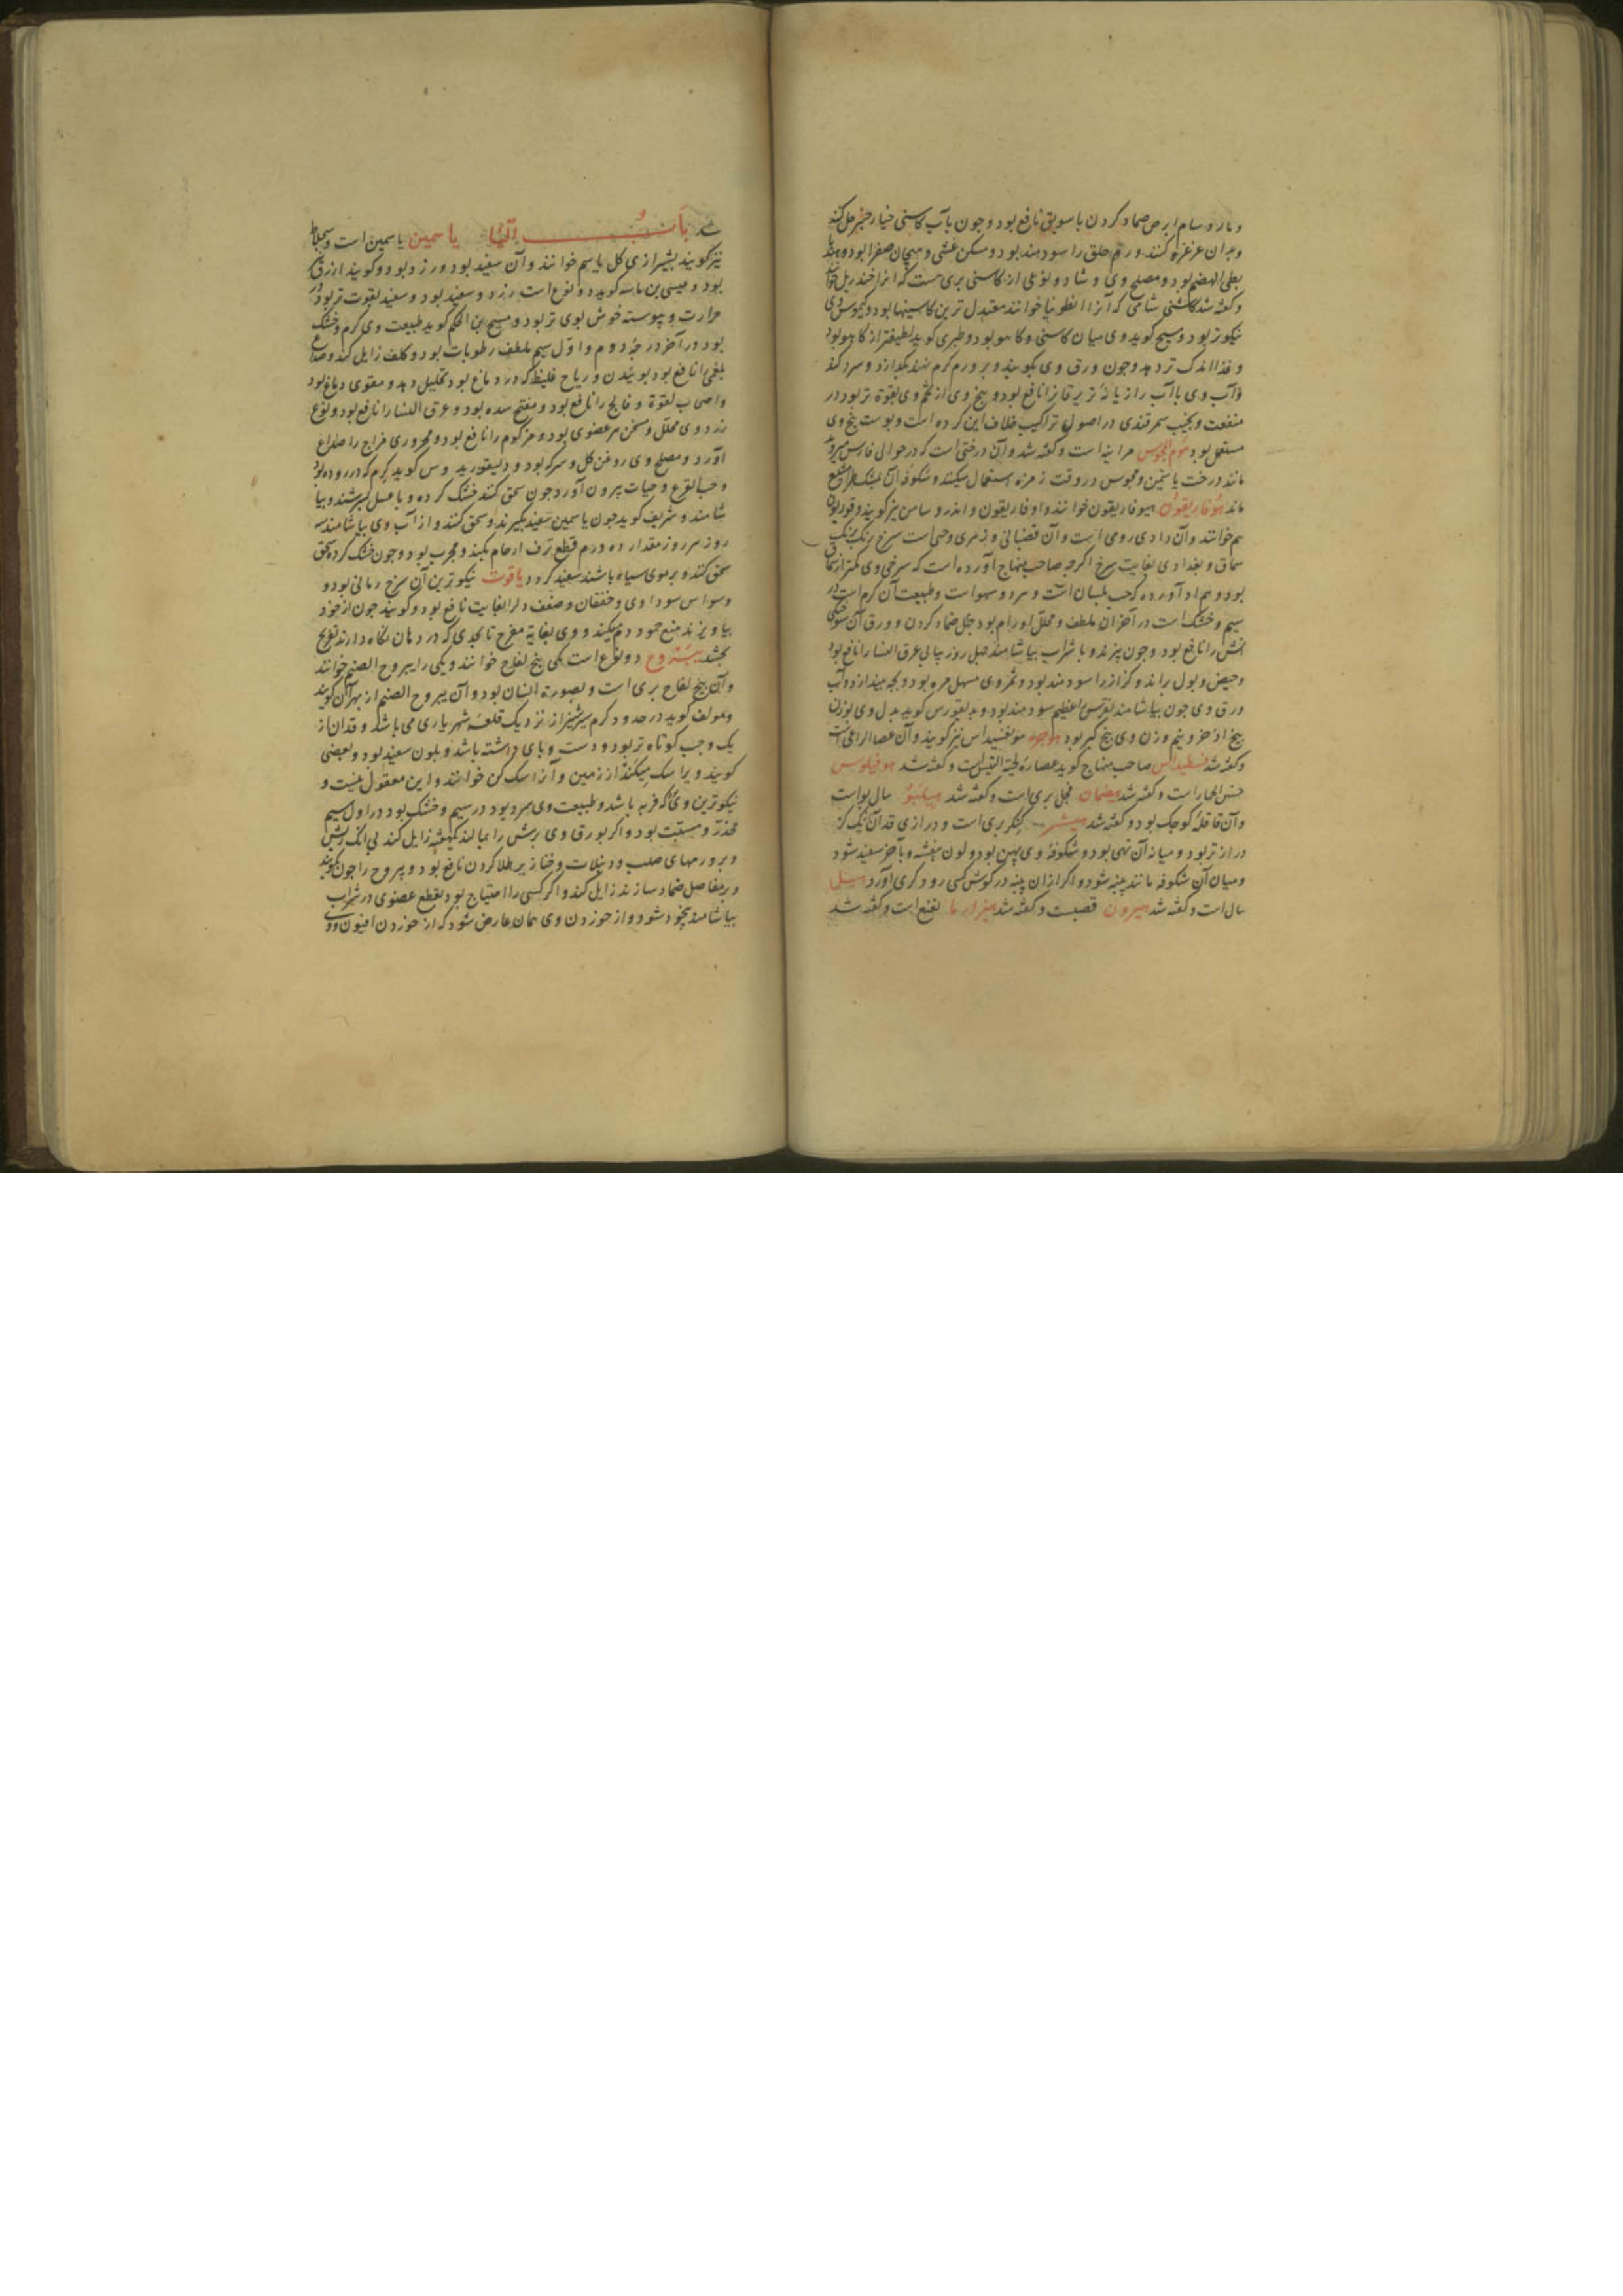 و مار و سام ابرص ضماد کردن با سویق نافع بود و چون بآب کاسنی خیار چنبر حل کنند
و بدان غرغره کنند ورم حلق را سودمند بود و مسکن غشی و هیجان صفرا بود و
بطی الهضم بود و مصلح وی و شاد و نوعی از کاسنی بری هست که انرا خندریل خوانند
و گفته شد کاسنی شامی که آنرا انطوبیا خوانند معتدل ترین کاسنیها بود و کیموس وی
نیکوتر بود و مسیح کوید وی میان کاسنی و کاهو بود و طبری کوید لطیفتر از کاهو بود
و غذا اندک تر دهد و چون ورق وی بکوبند و بر ورم کرم نهند بکدازد و سرد کند
و آب وی با آب رازیانه تر یرقانرا نافع بود و بیخ وی از تخم وی بقوة تر بود در
منفعت و نجیب سمرقندی در اصول تراکیب خلاف این کرده است و پوست بیخ وی
مستعمل بود هوم المجوس مرانیه است و گفته شد و آن درختی است که در حوالی فارس میروید
مانند درخت یاسمین و مجوس در وقت زمزمه استعمال میکنند و شکوفه آن
ماند هوفاریقون هیوفاریقون خوانند و اوفاریقون و اندروسامن نیز کویند و قوریون
هم خوانند و آن دادی رومی است و آن قضبانی و زهری و حبی است سرخ رنک برنک
سماق و بغدادی بغایت سرخ اکرچه صاحب منهاج آورده است که سرخی وی کمتر از سماق
بود و هم او آورده که حب بلسان است و هر دو سهو است و طبیعت آن کرم است در
سیم و خشک است در آخر آن ملطف و محلل اورام بود چون ضماد کردن و ورق آن سوختکی
آتش را نافع بود و چون بپزند و با شراب بیاشامند چهل روز پیاپی عرق النسا را نافع بود
و حیض و بول براند و کزاز را سودمند بود و ثمر وی مسهل مره بود و بچه بیندازد و آب
ورق وی چون بیاشامند نقرس اعظیم سودمند بود و دیسقوریدس کوید بدل وی بوزن
بیخ اذخر و نیم وزن وی بیخ کبر بود هوجه هوقسیداس نیز کویند و آن عصا الراعی است
و گفته شد هیوفسطیداس صاحب منهاج کوید عصاره لحیة التیس است و گفته شد هوفیلوس
خس الحمار است و گفته شد هیضمان فجل بری است و گفته شد هیلبو هال بوا است
و آن قاقله کوچک بود و گفته شد هیشر کنکر بری است و درازی قد آن یک کز
درازتر بود و میانه آن تهی بود و شکوفه وی پهن بود و لون بنفشه و بآخر سفید شود
و میان آن شکوفه مانند پنبه شود و اکر ازان پنبه در کوش کسی رود کری آورد هیلما
هال است و گفته شد هیرون قصبست و گفته شد هیزارما لفنع است و گفته شد
شد باب الیا یاسمین یاسمین است و سجلاط
نیز کویند بشیرازی کل یاسم خوانند و آن سفید بود و زرد بود و کویند ازرق
بود و عیسی بن ماسه کوید دو نوع است زرد و سفید بود و سفید بقوت تر بود در
حرارت و پیوسته خوش بوی تر بود و مسیح بن الحکم کوید طبیعت وی کرم و خشک
بود در آخر درجه دوم و اول سیم ملطف رطوبات بود و کلف زایل کند و صداع
بلغمی را نافع بود بوییدن و ریاح غلیظ که در دماغ بود تحلیل دهد و مقوی دماغ بود
و اصحاب لقوة و فالج را نافع بود و مفتح سده بود و عرق النسا را نافع بود و نوع
زرد وی محلل و مسخن هر عضوی بود و مزکوم را نافع بود و محروری مزاج را صداع
آورد و مصلح وی روغن کل و سرکه بود و دیسقوریدوس کوید کرم که در روده بود
و حب القرع و حیات بیرون آورد چون سحق کنند خشک کرده و با عسل بسرشند و بیا
شامند و شریف کوید چون یاسمین سفید بکیرند و سحق کنند و از آب وی بیاشامند سه
روز هر روز مقدار ده درم قطع نزف ارحام بکند و مجرب بود و چون خشک کرده سحق
سحق کنند و بر موی سیاه پاشند سفید کردد یاقوت نیکوترین آن سرخ رمانی بود و
وسواس سوداوی و خفقان و ضعف دل را بغایت نافع بود و کویند چون از خود
بیاویزند منع جمود دم میکند و وی بغایة مفرح تا بحدی که در دهان نکاه دارند تفریح
بخشد یبروح دو نوع است یکی بیخ لفاح خوانند و یکی را یبروح الصنم خوانند
و آن بیخ لفاح بری است و بصورة انسان بود و آن یبروح الصنم از بهر آن کویند
و مولف کوید در حدود کرم سیر شیراز نزدیک قلعه شهریاری می باشد و قد آن از
یک وجب کوتاه تر بود و دست و پای داشته باشد و بلون سفید بود و بعضی
کویند ویرا سک میکند از زمین و آنرا سک کن خوانند و این معقول نیست و
نیکوترین وی آنکه فربه باشد و طبیعت وی سرد بود در سیم و خشک بود در اول سیم
مخدر و مسبت بود و اکر بورق وی برش را بمالند یکهفته زایل کند بی آنکه ریش
و برورمهای صلب و دبیلات و خنازیر طلا کردن نافع بود و یبروح را چون بکوبند
و بر مفاصل ضماد سازند زایل کند و اکر کسی را احتیاج بود بقطع عضوی در شراب
بیاشامند بیخود شود و از خوردن وی همان عارض شود که از خوردن افیون و وی